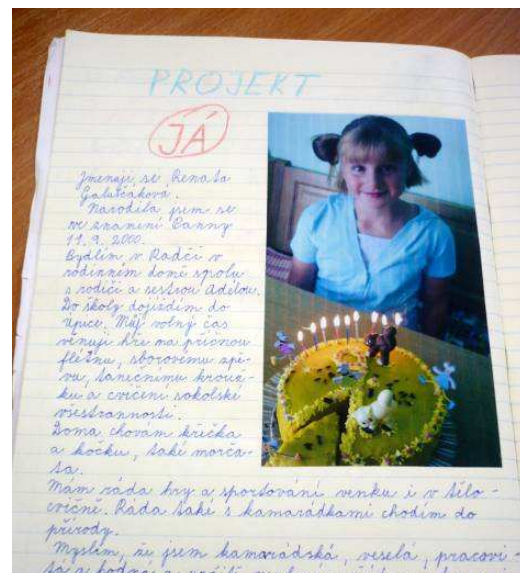 PROJEKT
JÁ
Jmenuji se Renata
Galuščáková.
Narodila jsem se
ve znamení Panny
11. 9. 2000.
Bydlím v Radči v
rodinném domě spolu
s rodiči a sestrou Adélou.
Do školy dojíždím do
Úpice. Můj volný čas
věnuji hře na příčnou
flétnu, sborovému zpě-
vu, tanečnímu krouž-
ku a cvičení sokolské
všestrannosti.
Doma chovám křečka
a kočku, také morča-
ta.
Mám ráda hry a sportování venku i v tělo-
cvičně. Ráda také s kamarádkami chodím do
přírody.
Myslím, že jsem kamarádská, veselá, pracovi-
tá a hodná a